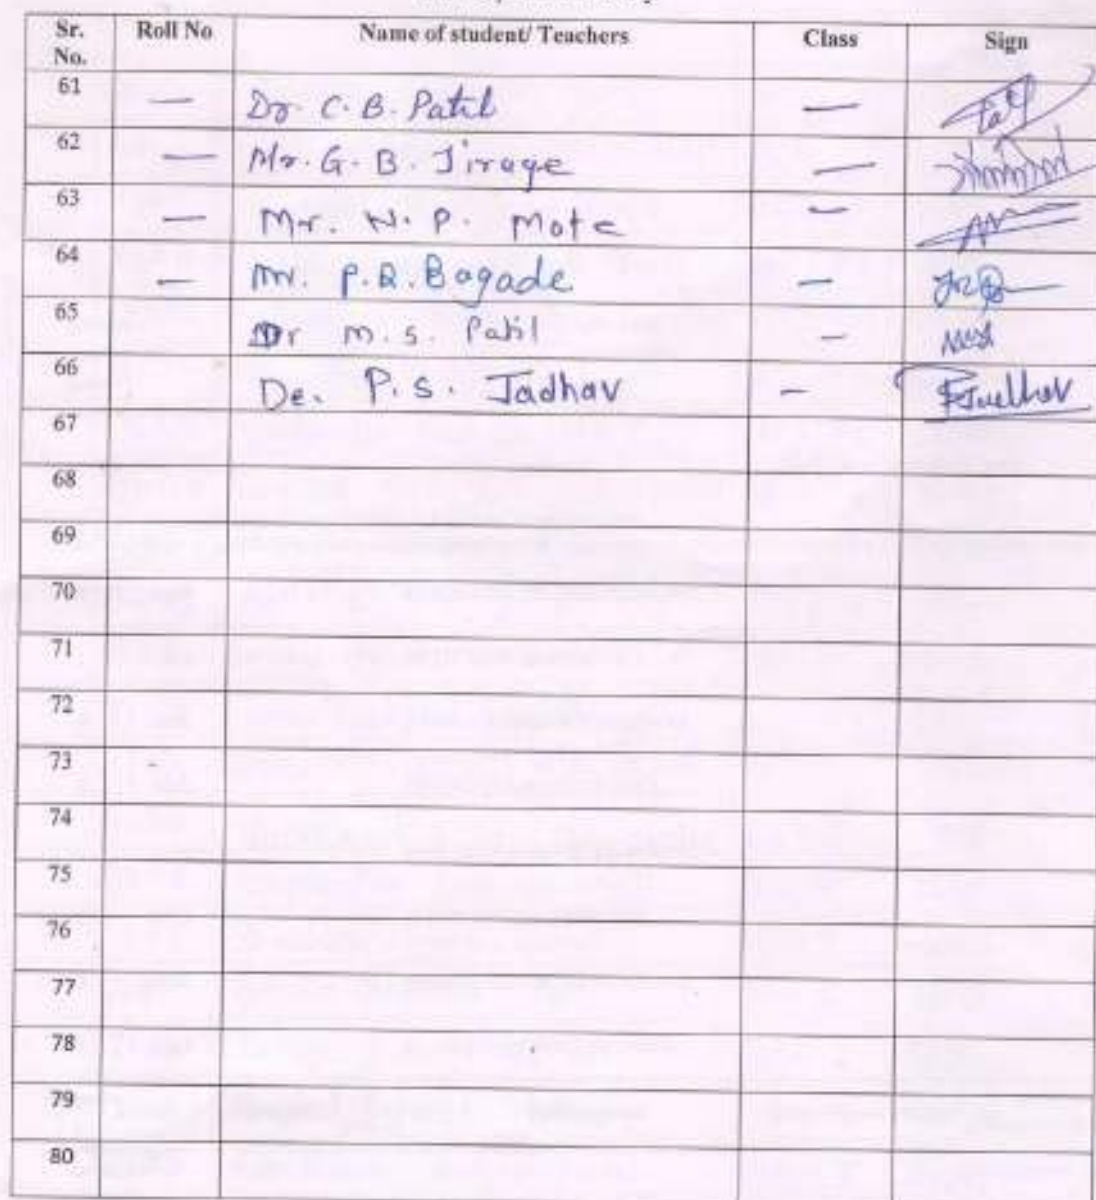 Sr. No. Roll No Name of student/ Teachers Class Sign
61 — Dr. C. B. Patil —
62 — Mr. G. B. Jirage —
63 — Mr. N. P. Mote —
64 — Mr. P. R. Bagade —
65 Dr M. S. Patil –
66 De. P. S. Jadhav –
67
68
69
70
71
72
73
74
75
76
77
78
79
80